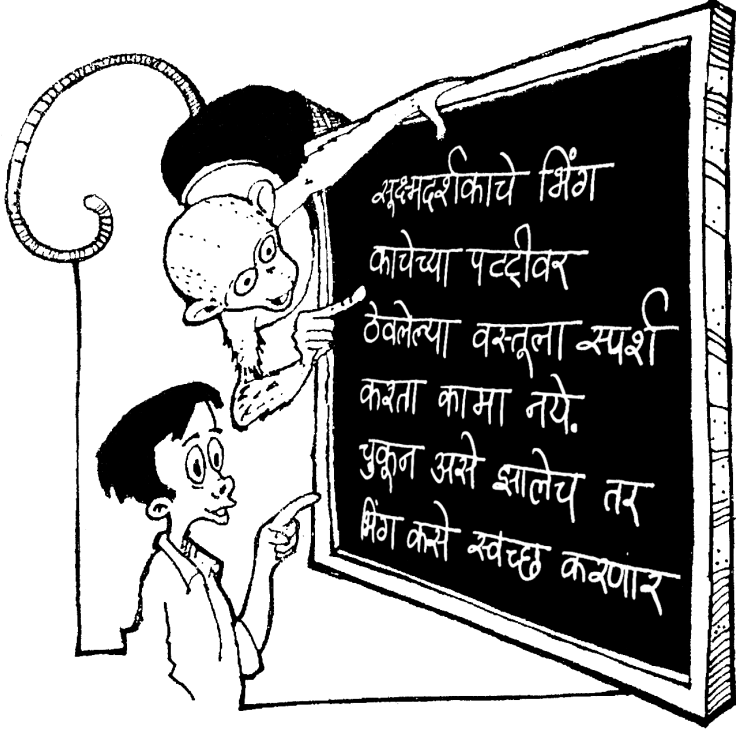 सूक्ष्मदर्शकाचे भिंग
काचेच्या पट्टीवर
ठेवलेल्या वस्तूला स्पर्श
करता कामा नये.
चुकून असे झालेच तर
भिंग कसे स्वच्छ करणार